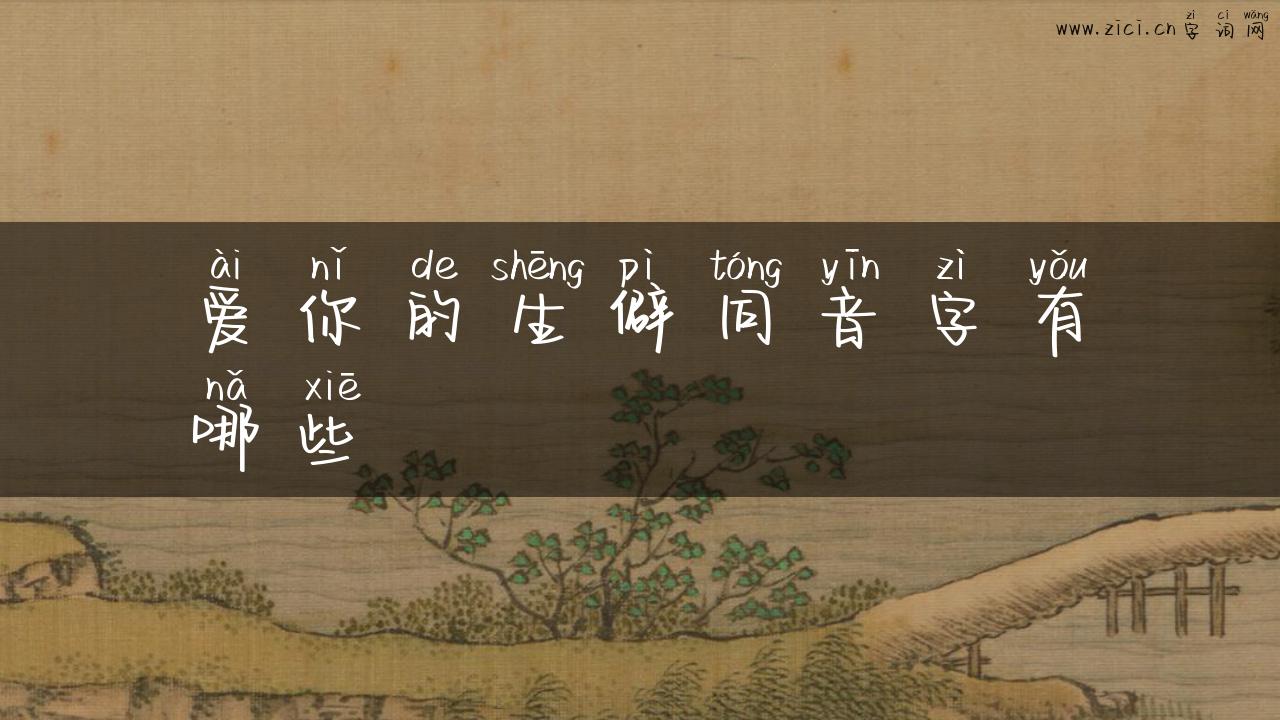 zì cí wǎng
www.zici.cn 字词网
ài nǐ de shēng pì tóng yīn zì yǒu
爱你的生僻同音字有
nǎ xiē
哪些